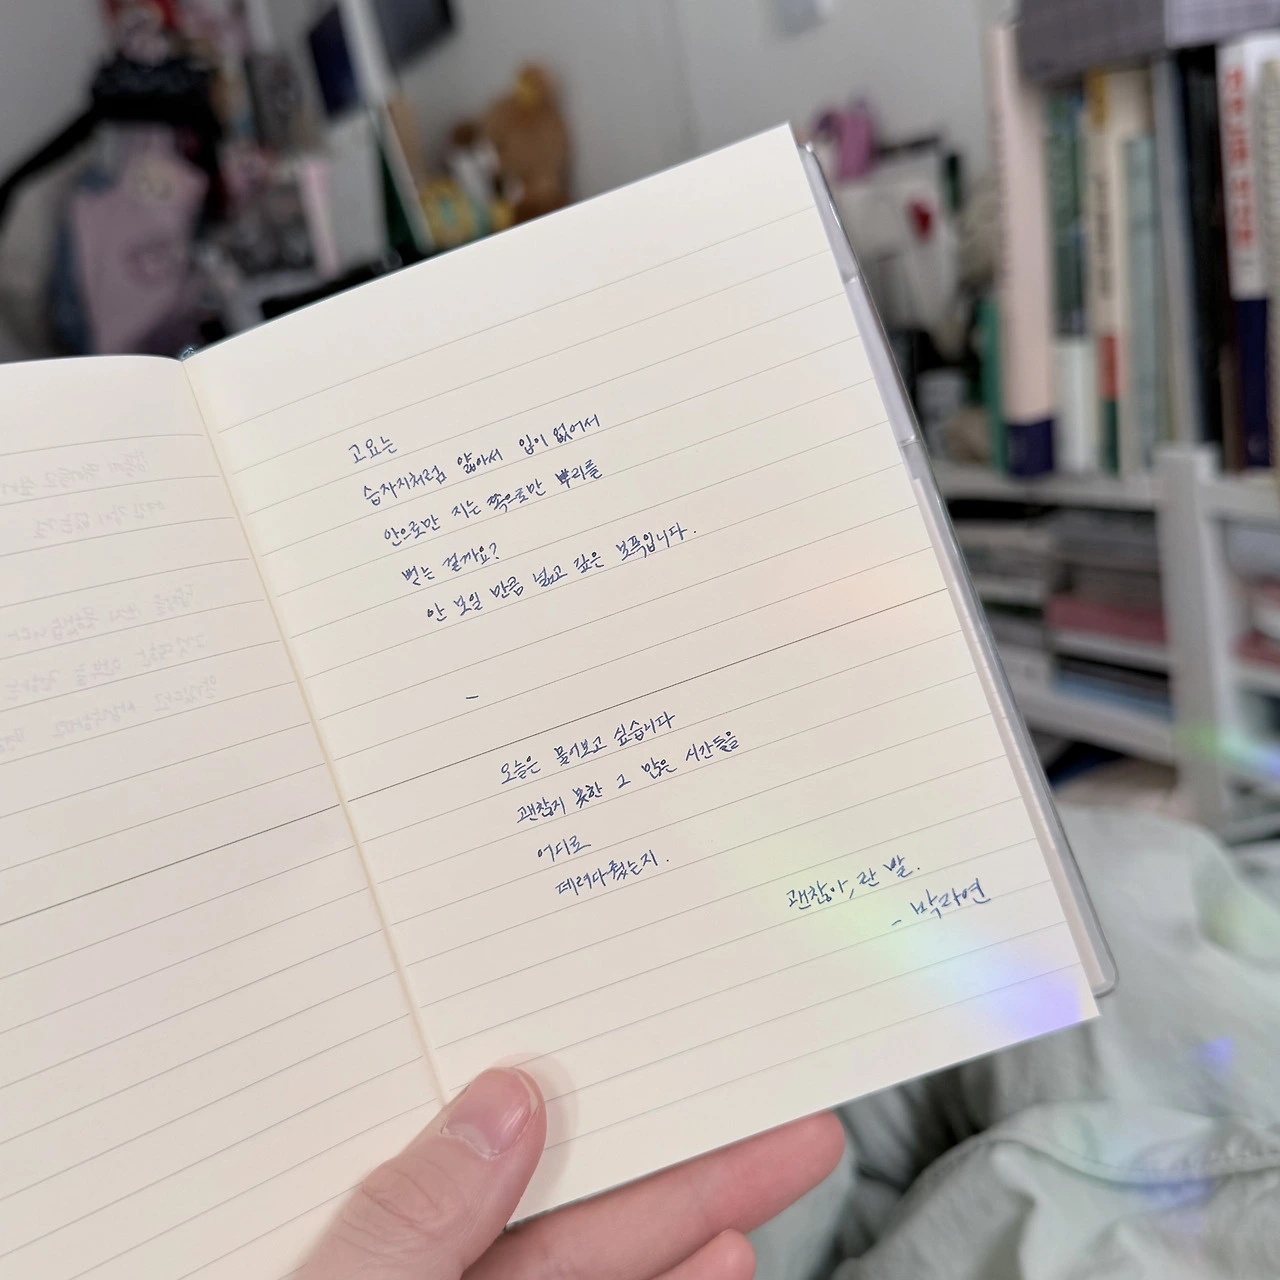 고요는
습자지처럼 얇아서 입이 없어서
안으로만 지는 쪽으로만 뿌리를
뻗는 걸까요?
안 보일 만큼 넓고 깊은 보폭입니다.
~
오늘은 물어보고 싶습니다
괜찮지 못한 그 많은 시간들을
어디로
데려다줬는지.
괜찮아, 란 말.
- 박라연